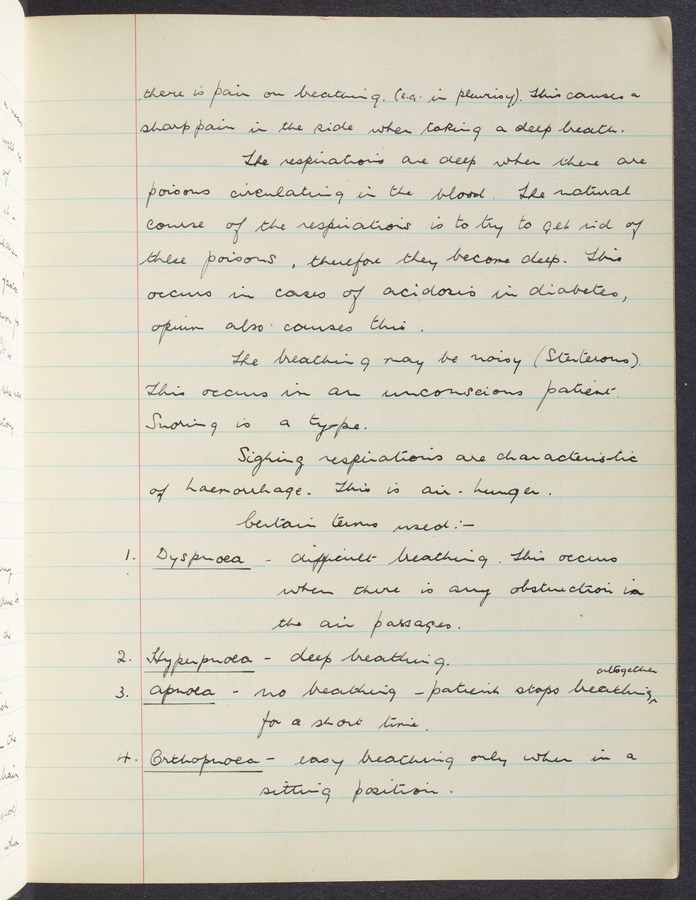 there is pain on breathing. (e.g. in pleurisy). This causes a
sharp pain in the side when taking a deep breath.
The respirations are deep when there are
poisons circulating in the blood. The natural
course of the respirations is to try to get rid of
these poisons, therefore they become deep. This
occurs in cases of acidosis in diabetes,
opium also causes this.
The breathing may be noisy (Sterterous).
This occurs in an unconscious patient.
Snoring is a type.
Sighing respirations are characteristic
of haemorrhage. This is air-hunger.
Certain terms used:-
1. Dyspnoea - difficult breathing. This occurs
when there is any obstruction in
the air passages.
2. Hyperpnoea - deep breathing.
altogether
3. Apnoea - no breathing - patient stops breathing,
for a short time.
4. Orthopnoea - easy breathing only when in a
sitting position.